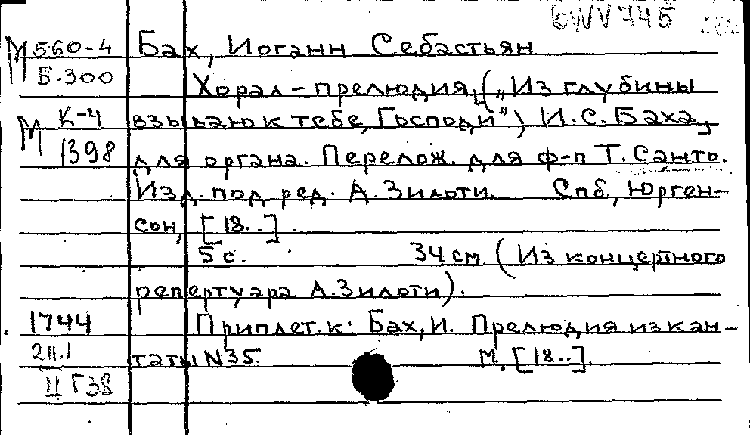 BWV 745
М 560-4 Бах, Иоганн Себастьян
Б.300 Хорал-прелюдия, („Из глубины
М К-4 взываю к тебе, Господи") И.С. Баха,
1398 для органа. Перелож. для ф-п Т. Санто.
Изд. под ред. А. Зилоти. Спб, Юрген-
сон, [18..].
5 с. 34 см (Из концертного
репертуара А. Зилоти).
1744 Приплет. к: Бах, И. Прелюдия из кан-
2п.1 таты N35. М, [18..].
II Г38